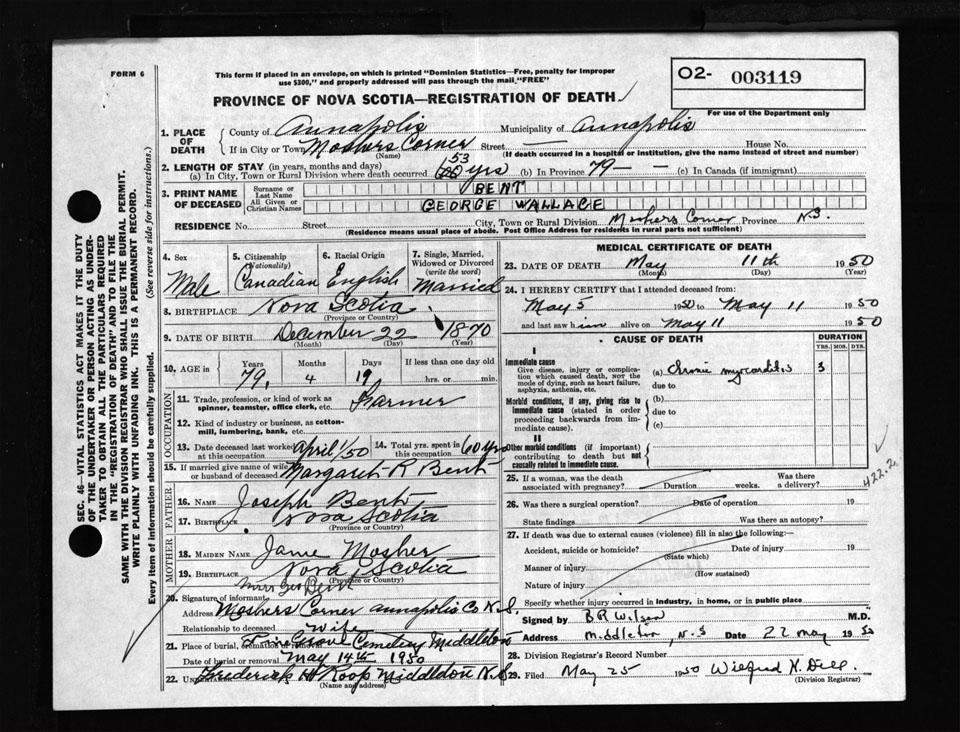 FORM 6
This form if placed in an envelope, on which is printed "Dominion Statistics—Free, penalty for improper
use $300," and properly addressed will pass through the mail "FREE"
O2- 003119
PROVINCE OF NOVA SCOTIA—REGISTRATION OF DEATH
For use of the Department only
1. PLACE OF DEATH { County of Annapolis Municipality of Annapolis
If in City or Town Moshers Corner Street — House No.
(Name) (If death occurred in a hospital or institution, give the name instead of street and number)
2. LENGTH OF STAY (in years, months and days)
(a) In City, Town or Rural Division where death occurred 53 yrs (b) In Province 79 — (c) In Canada (if immigrant)
3. PRINT NAME OF DECEASED { Surname or Last Name BENT
All Given or Christian Names GEORGE WALLACE
RESIDENCE No. Street City, Town or Rural Division Moshers Corner Province N.S.
(Residence means usual place of abode. Post Office Address for residents in rural parts not sufficient)
4. Sex Male
5. Citizenship (Nationality) Canadian
6. Racial Origin English
7. Single, Married, Widowed or Divorced (write the word) Married
8. BIRTHPLACE Nova Scotia
(Province or Country)
9. DATE OF BIRTH December 22 1870
(Month) (Day) (Year)
10. AGE in { Years Months Days If less than one day old
79, 4 19 hrs. or min.
OCCUPATION
11. Trade, profession, or kind of work as
spinner, teamster, office clerk, etc. Farmer
12. Kind of industry or business, as cotton-
mill, lumbering, bank, etc.
13. Date deceased last worked at this occupation April 1/50
14. Total yrs. spent in this occupation 60 yrs
15. If married give name of wife or husband of deceased Margaret R Bent
FATHER
16. NAME Joseph Bent
17. BIRTHPLACE Nova Scotia
(Province or Country)
MOTHER
18. MAIDEN NAME Jane Mosher
19. BIRTHPLACE Nova Scotia
(Province or Country)
20. Signature of informant Mrs Geo Bent
Address Moshers Corner Annapolis Co N.S.
Relationship to deceased Wife
21. Place of burial, cremation or removal Cemetery Middleton
Date of burial or removal May 14th 1950
22. UNDERTAKER Frederick H Roop Middleton N.S
(Name and address)
MEDICAL CERTIFICATE OF DEATH
23. DATE OF DEATH May 11th 1950
(Month) (Day) (Year)
24. I HEREBY CERTIFY that I attended deceased from:
May 5 1950 to May 11 1950
and last saw him alive on May 11 1950
CAUSE OF DEATH
DURATION
YRS. MOS. DYS.
I
Immediate cause
Give disease, injury or complica-
tion which caused death, NOT the
mode of dying, such as heart failure,
asphyxia, asthenia, etc.
(a) Chronic myocarditis 3
due to
Morbid conditions, if any, giving rise to
immediate cause (stated in order
proceeding backwards from im-
mediate cause).
(b)
due to
(c)
II
Other morbid conditions (if important)
contributing to death but not
causally related to immediate cause.
422.2
25. If a woman, was the death associated with pregnancy? Duration weeks. Was there a delivery?
26. Was there a surgical operation? Date of operation 19
State findings Was there an autopsy?
27. If death was due to external causes (violence) fill in also the following:
Accident, suicide or homicide? Date of injury 19
(State which)
Manner of injury
(How sustained)
Nature of injury
Specify whether injury occurred in industry, in home, or in public place
Signed by B R Wilson M.D.
Address Middleton, N.S Date 22 May 1950
28. Division Registrar's Record Number
29. Filed May 25 1950 Wilfred H. Dill.
(Division Registrar)
SEC. 46—VITAL STATISTICS ACT MAKES IT THE DUTY
OF THE UNDERTAKER OR PERSON ACTING AS UNDER-
TAKER TO OBTAIN ALL THE PARTICULARS REQUIRED
IN THE "REGISTRATION OF DEATH" AND TO FILE THE
SAME WITH THE DIVISION REGISTRAR WHO SHALL ISSUE THE BURIAL PERMIT.
WRITE PLAINLY WITH UNFADING INK. THIS IS A PERMANENT RECORD.
Every item of information should be carefully supplied. (See reverse side for instructions.)